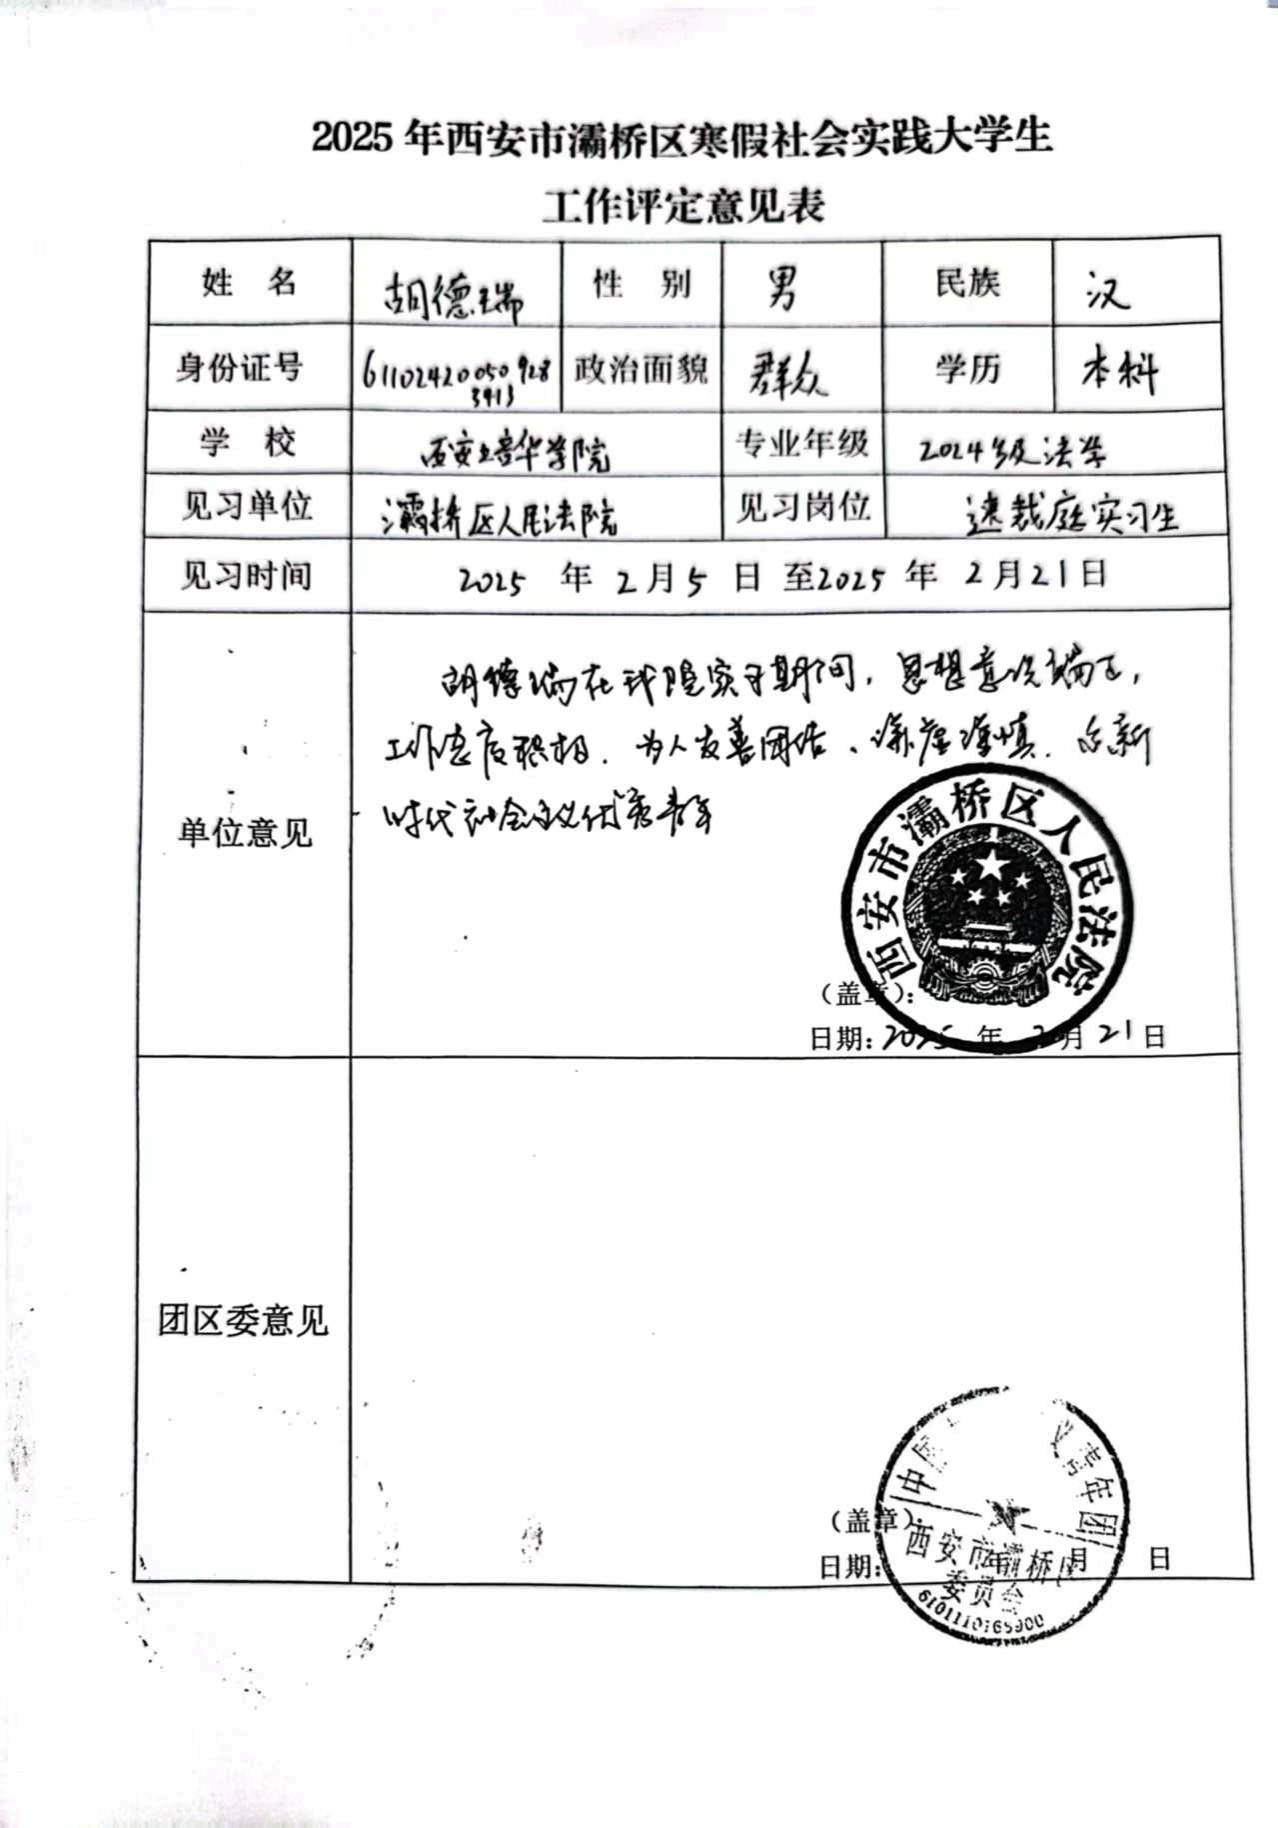 2025年西安市灞桥区寒假社会实践大学生
工作评定意见表
姓 名 胡德瑞 性 别 男 民族 汉
身份证号 61102420050928 政治面貌 群众 学历 本科
3413
学 校 西安培华学院 专业年级 2024级法学
见习单位 灞桥区人民法院 见习岗位 速裁庭实习生
见习时间 2025 年 2月5 日 至2025 年 2月21日
胡德瑞在我院实习期间，思想意识端正，
工作态度积极，为人友善团结、谦虚谨慎，
单位意见 时代社会主义优秀青年
西安市灞桥区人民法院
（盖章）：
日期：2025 年 2月21日
团区委意见
年团
（盖章）：
西安市灞桥区
日期： 年 月 日
委员会